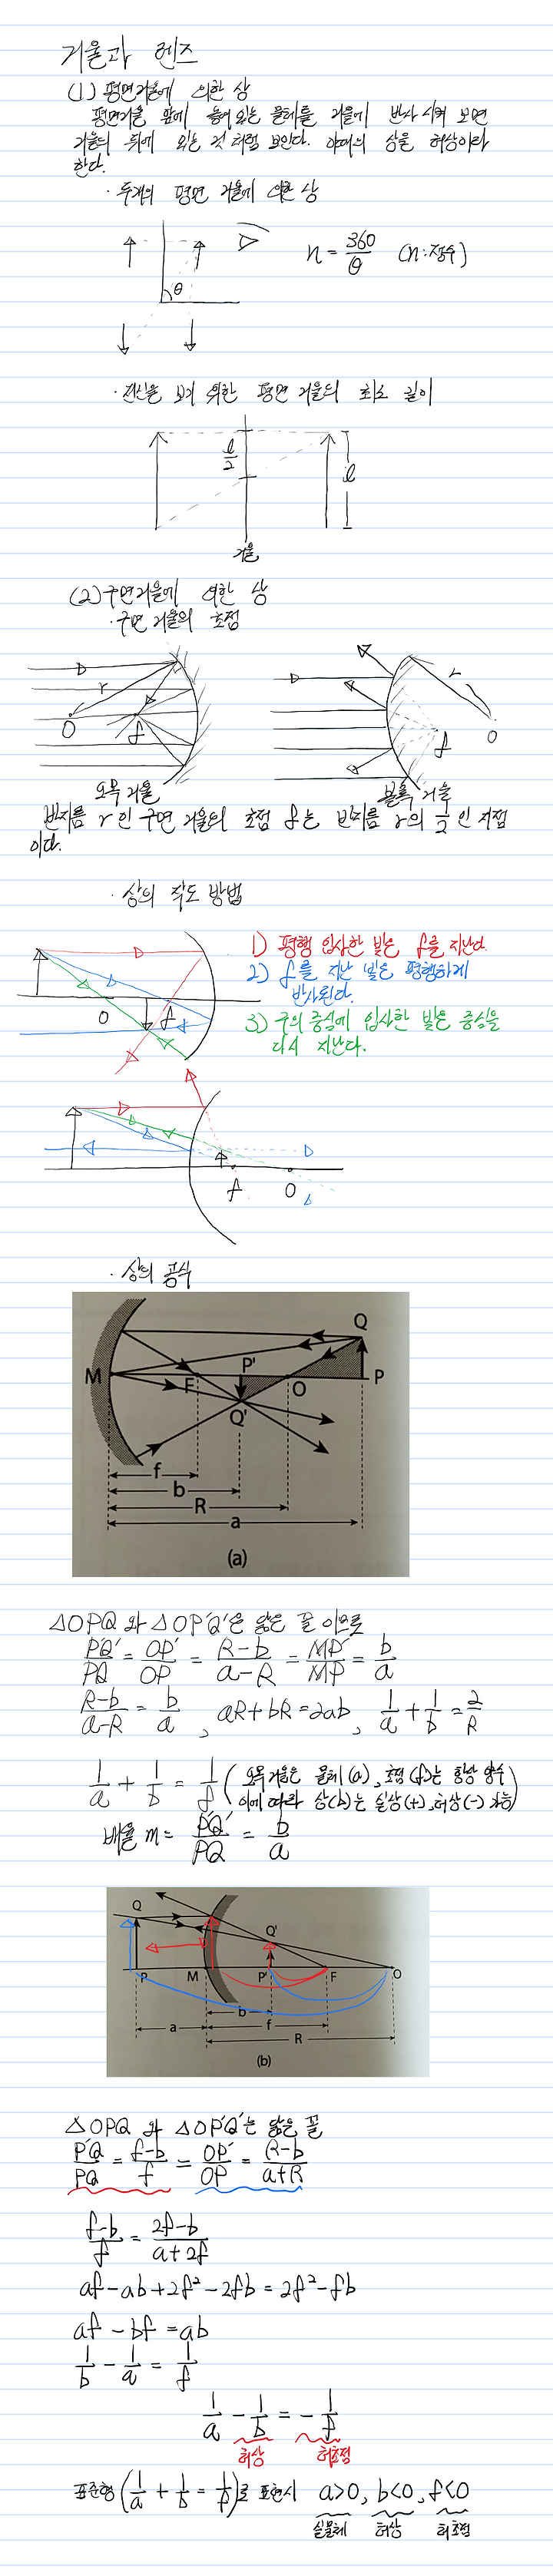 거울과 렌즈
(1) 평면거울에 의한 상
평면거울 앞에 놓여 있는 물체를 거울에 반사 시켜 보면
거울의 뒤에 있는 것 처럼 보인다. 이때의 상을 허상이라
한다.
· 두개의 평면 거울에 의한 상
θ
n = 360/θ (n:정수)
· 전신을 보기 위한 평면 거울의 최소 길이
l/2
l
거울
(2) 구면거울에 의한 상
· 구면 거울의 초점
r
O
f
오목 거울
r
f
O
볼록 거울
반지름 r인 구면 거울의 초점 f는 반지름 r의 1/2인 지점
이다.
· 상의 작도 방법
1) 평행 입사한 빛은 f를 지난다.
2) f를 지난 빛은 평행하게
반사된다.
3) 구의 중심에 입사한 빛은 중심을
다시 지난다.
O
f
f
O
· 상의 공식
Q
M
F
P'
O
P
Q'
f
b
R
a
(a)
△OPQ 와 △OP'Q'은 닮은 꼴 이므로
P'Q'/PQ = OP'/OP = R-b/a-R = MP'/MP = b/a
R-b/a-R = b/a, aR+bR=2ab, 1/a + 1/b = 2/R
1/a + 1/b = 1/f (오목 거울은 물체(a), 초점(f)는 항상 양수
이에 따라 상(b)는 실상(+), 허상(-) 가능)
배율 m = P'Q'/PQ = b/a
Q
Q'
P
M
P'
F
O
b
a
f
R
(b)
△OPQ 와 △OP'Q'는 닮은 꼴
P'Q/PQ = f-b/f = OP'/OP = R-b/a+R
f-b/f = 2f-b/a+2f
af-ab+2f²-2fb=2f²-fb
af-bf=ab
1/b - 1/a = 1/f
1/a - 1/b = - 1/f
허상
허초점
표준형 (1/a + 1/b = 1/f)로 표현시 a>0, b<0, f<0
실물체
허상
허초점